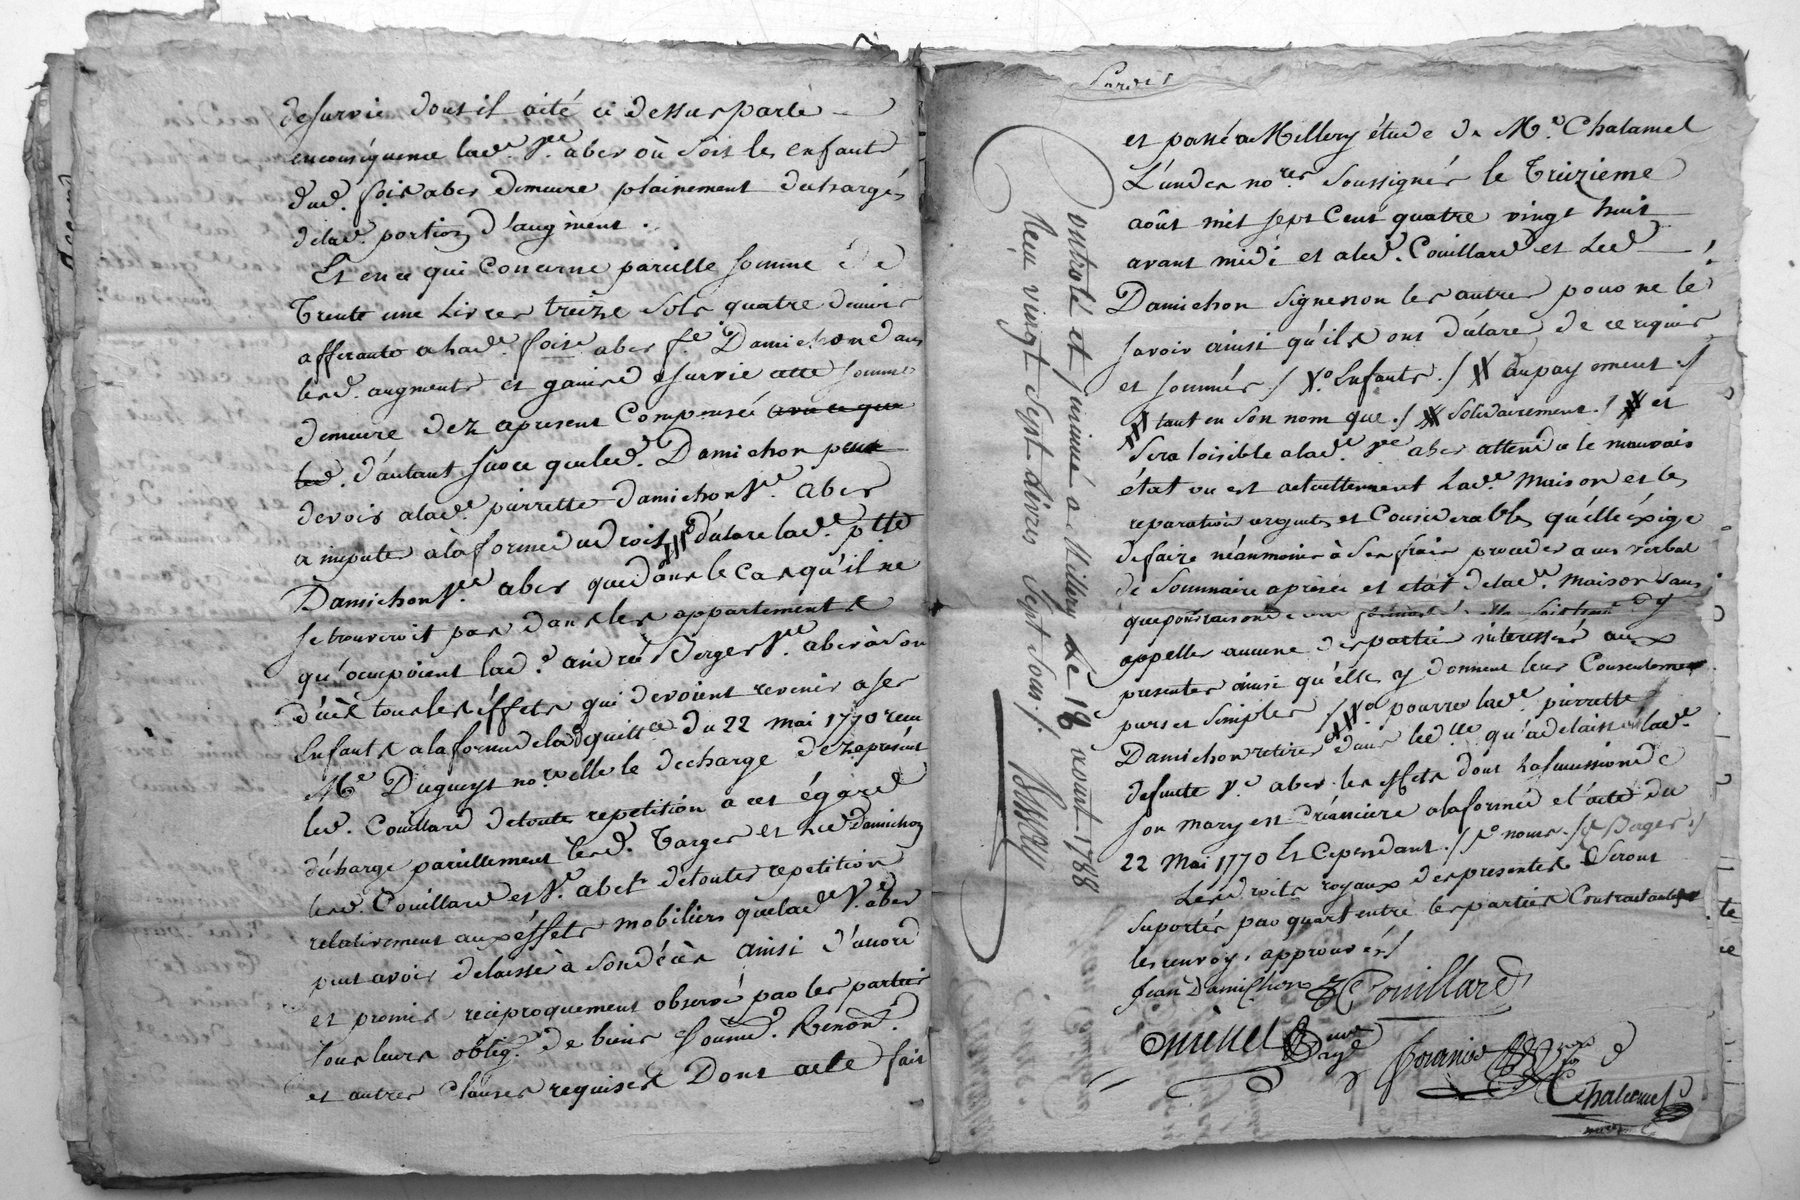 de survie dont il a été ci dessus parlé
en conséquence lad.e V.e aber où soit les enfants
dud. foir aber demeure plainement dechargés
de lad.e portion d'augment.
Et en ce qui concerne pareille somme de
Trente une Livres treize sols quatre deniers
afferante a lad.e aber f.e Damichon dans
lesd. augments et gains de survie cette somme
demeure dez apresent Compensée avec ce que
led. d'autant sur ce que led. Damichon peut
devoir a lad.e pierrette damichon V.e aber
a imputer a la forme du droit déclare lad.e p.tte
Damichon V.e aber que dans le Cas qu'il ne
se trouveroit pas dans les appartements
qu'occupoient lad.e andrée Berger V.e aber à son
décès tous les éffets qui devoient revenir a ses
Enfants a la forme de la quitt.ce du 22 Mai 1770 reçu
M.e Dugueyt no.re elle le decharge dez apresent
led. Couillard de toute repetition a cet égard
décharge pareillement lesd. Targer et led Damichon
led. Couillard et V.e aber de toutes repetition
relativement aux éffets mobiliers que lad.e V.e aber
peut avoir delaissé à son décès ainsi d'accord
et promis réciproquement observé par les parties
sous leurs oblig.on de biens soumd. Renont.
et autres clauses requises Dont acte fait
et passé a Millery étude de M.e Chalamel
L'un des no.res soussignés le Treizieme
août mil sept Cent quatre vingt huit
avant midi et a led. Couillard et led
Damichon signé non les autres pour ne le
savoir ainsi qu'ils ont déclaré de ce requis
et sommés ./ X.o Enfants ./ XX au payement ./
XXX tant en son nom que ./ XX solidairement ./ XX et
sera loisible a lad.e V.e aber attendu le mauvais
état où est actuellement lad.e maison et les
reparations urgentes et Considerables qu'elle éxige
de faire néanmoins à ses frais proceder a un verbal
de Sommaire aprisée et état de lad.e maison sans
que pour raison de ce
appeller aucune des parties interessés aux
presentes ainsi qu'elles y donnent leur Consentement
purs et simples / pourra lad.e pierrette
Damichon retirer dans qu'a delaissé lad.e
defunte V.e aber les effets dont la succession de
son mary est Créanciere a la forme de l'acte du
22 Mai 1770 Et Cependant ./ nous ./ Berger ./
Les droits royaux des presentes seront
suportés par quart entre les parties Contractantes
les renvoy. approuvés /
Jean Damichon Couillard
Chalamel
Controlé et insinué a Millery Le 18 aoust 1788
Reçu vingt sept livres sept sous ./.